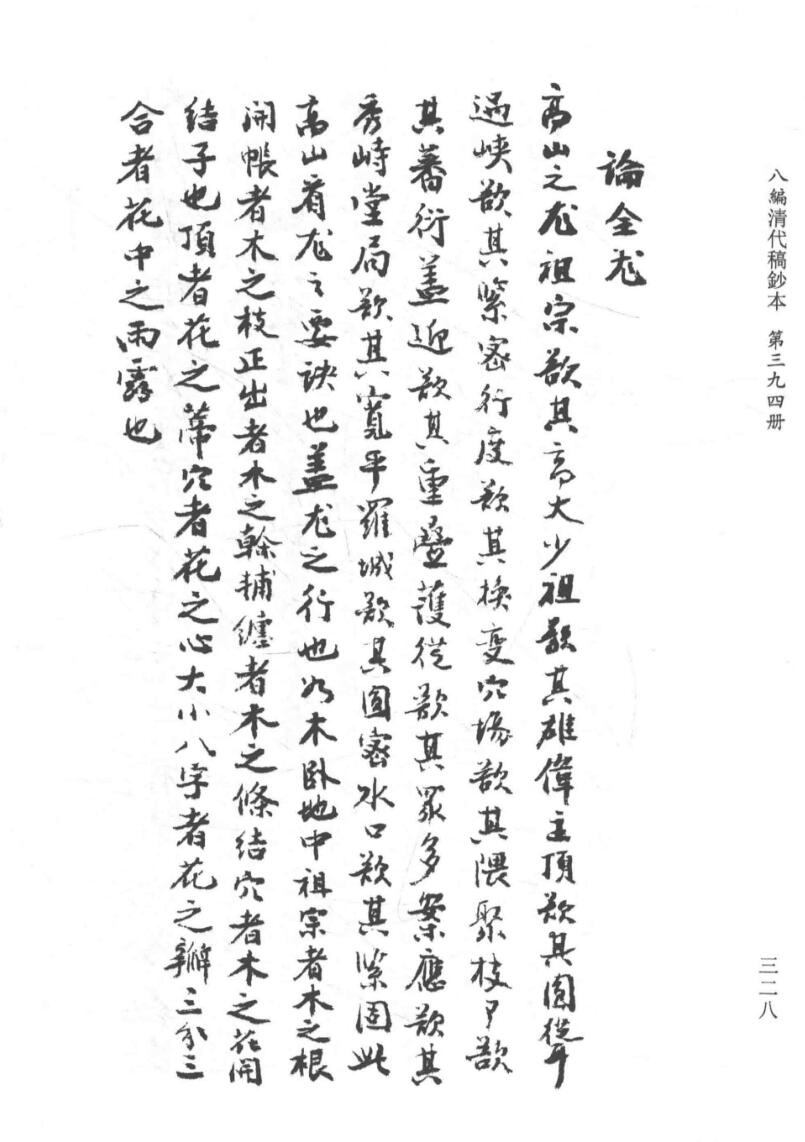 八編清代稿鈔本　第三九四册
論全龙
高山之龙祖宗欲其高大少祖欲其雄偉主頂欲其圓聳
過峡欲其紧密行度欲其换变穴塲欲其隈聚枝夕欲
其蕃衍盖迎欲其重疊護從欲其眾多案應欲其
秀峙堂局欲其寬平羅城欲其圓密水口欲其紧固此
高山看龙之要訣也盖龙之行也如木卧地中祖宗者木之根
開帳者木之枝正出者木之榦輔纏者木之條结穴者木之花開
结子也頂者花之蒂穴者花之心大小八字者花之瓣三分三
合者花中之雨露也
三二八